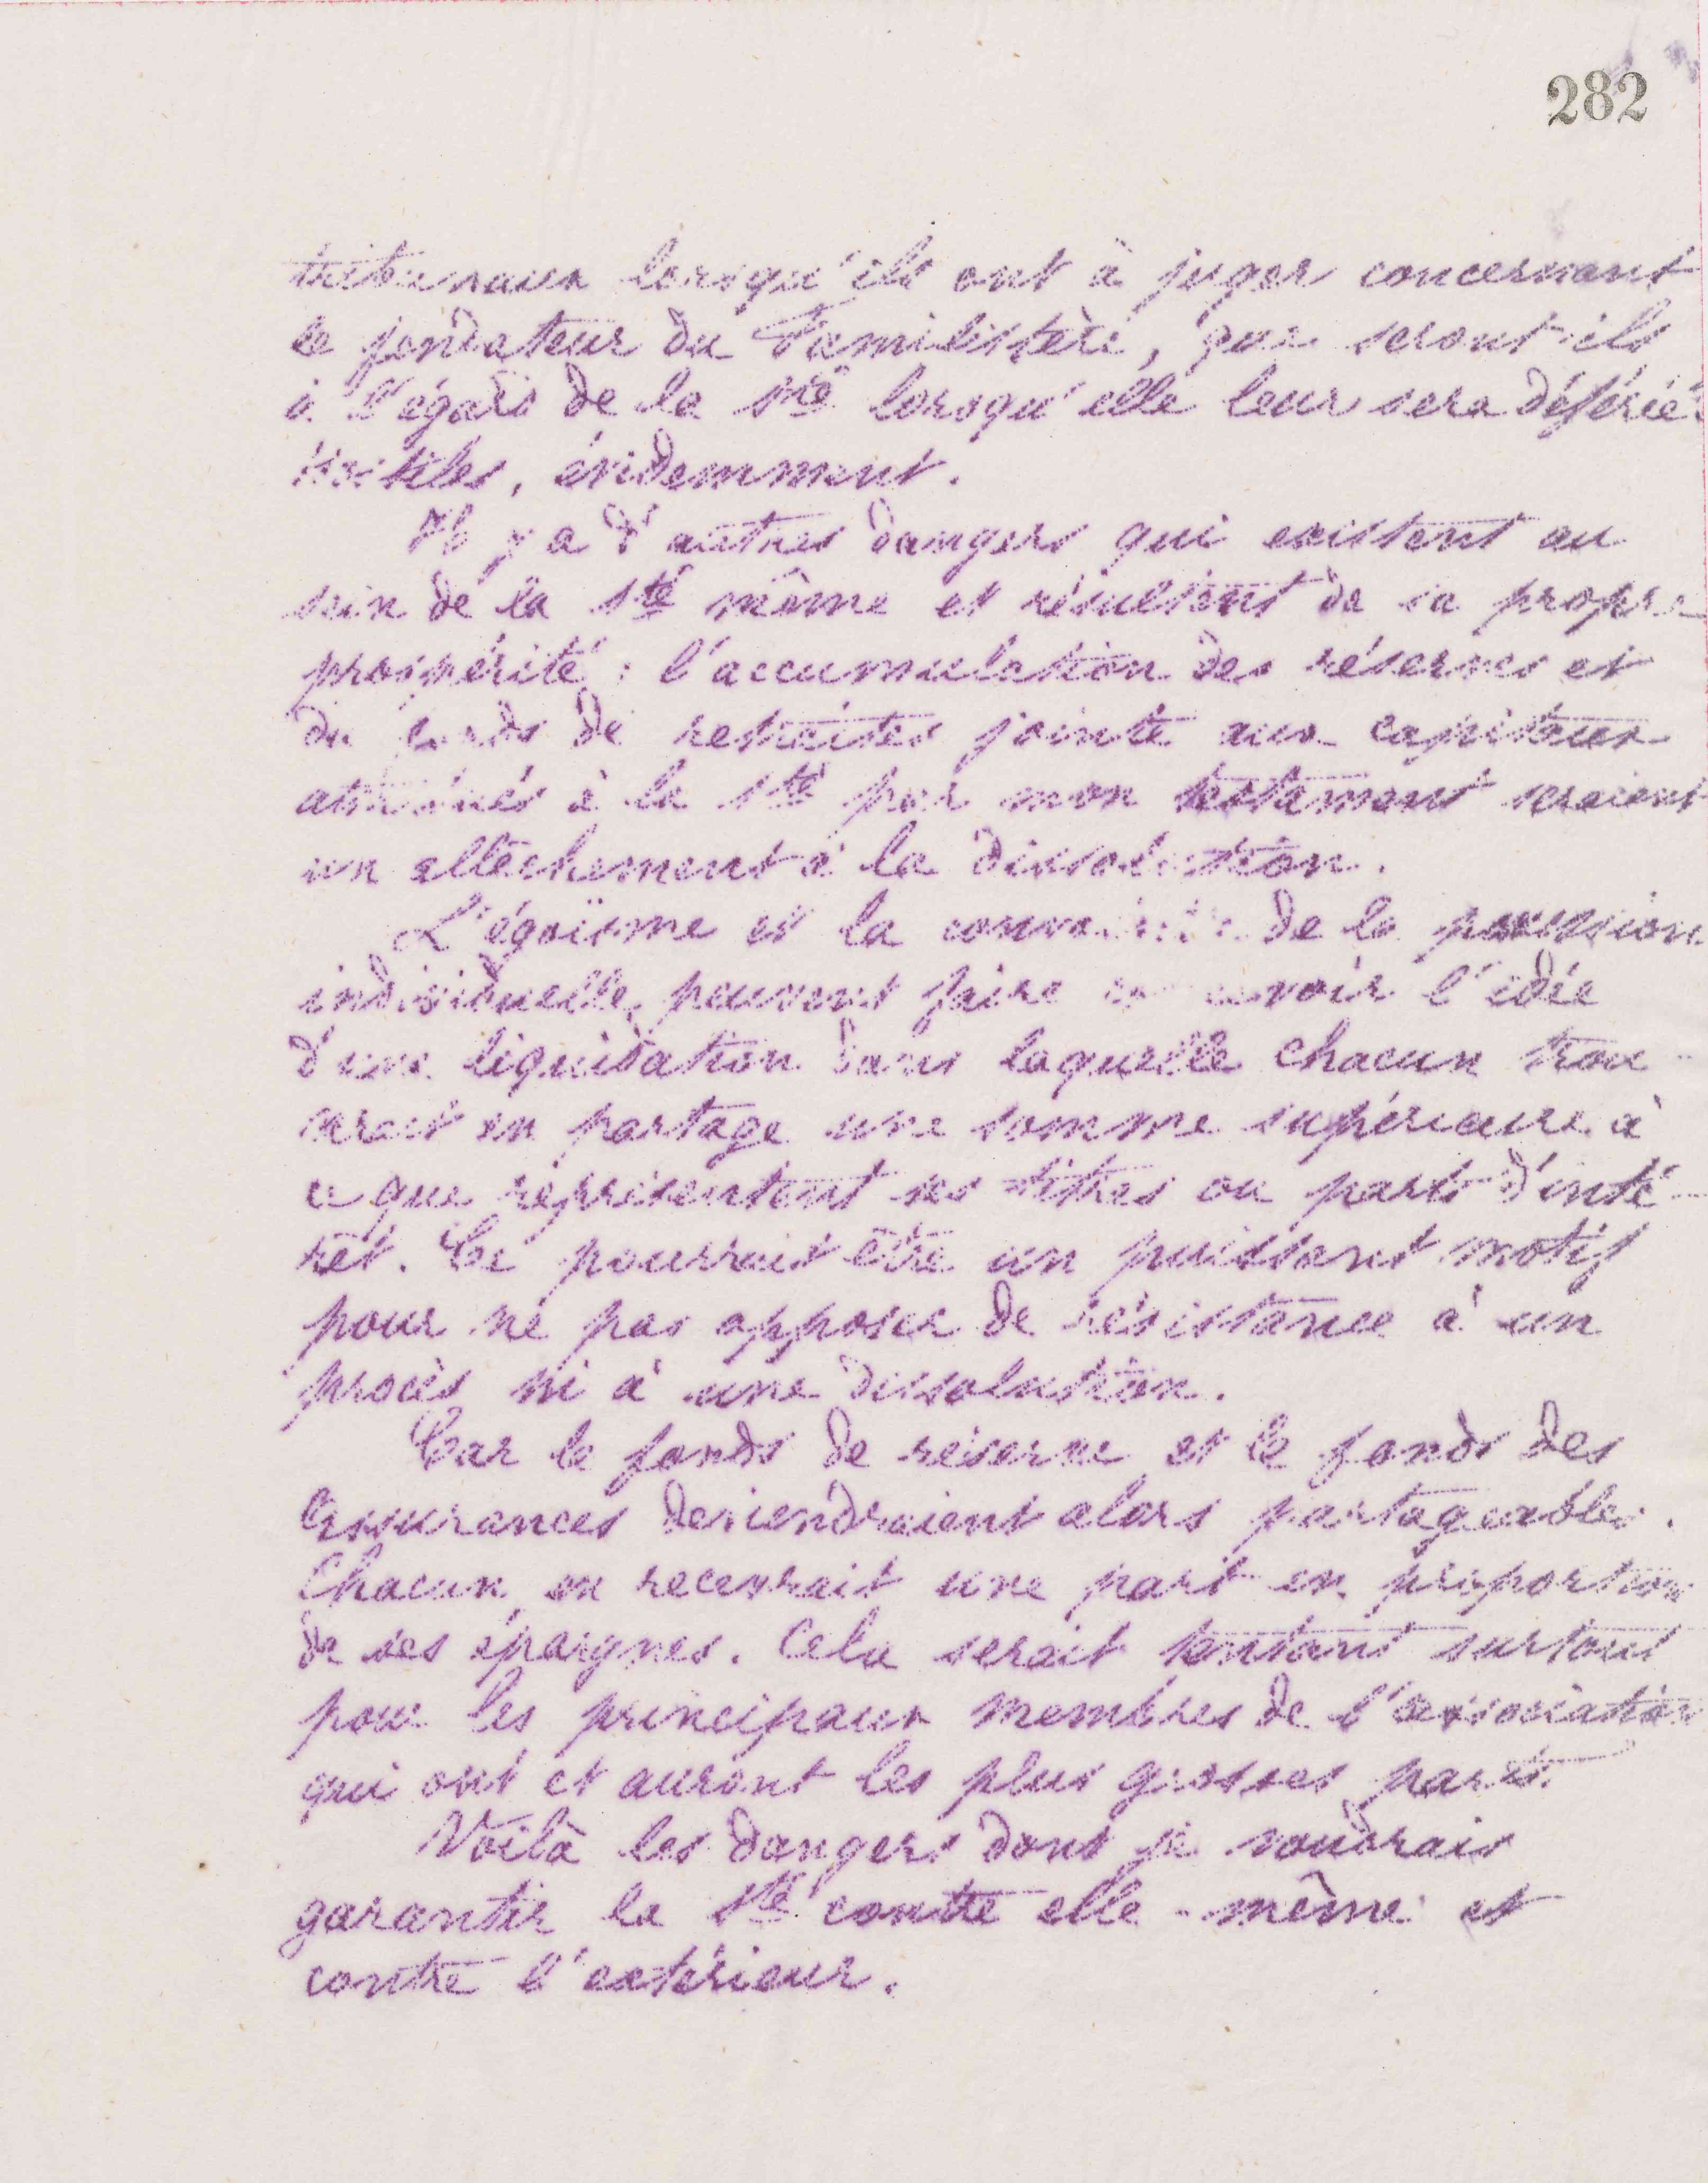 282
tribunaux lorsqu'ils ont à juger concernant
le fondateur du Familistère, que seront-ils
à l'égard de la Sté lorsqu'elle leur sera déférée?
hostiles, évidemment.
Il y a d'autres dangers qui existent au
sein de la Sté même et résultent de sa propre
prospérité : l'accumulation des réserves et
du fonds de retraites jointe aux capitaux
attribués à la Sté par mon testament seraient
un allèchement à la dissolution.
L'égoïsme et la de la possession
individuelle peuvent faire concevoir l'idée
d'une liquidation dans laquelle chacun trou-
verait en partage une somme supérieure à
ce que représentent ses titres ou parts d'inté-
rêt. Ce pourrait être un puissant motif
pour ne pas opposer de résistance à un
procès ni à une dissolution.
Car le fonds de réserve et le fonds des
Assurances deviendraient alors partageables.
Chacun en recevrait une part en proportion
de ses épargnes. Cela serait tentant surtout
pour les principaux membres de l'association
qui ont et auront les plus grosses parts.
Voilà les dangers dont je voudrais
garantir la Sté contre elle-même et
contre l'extérieur.